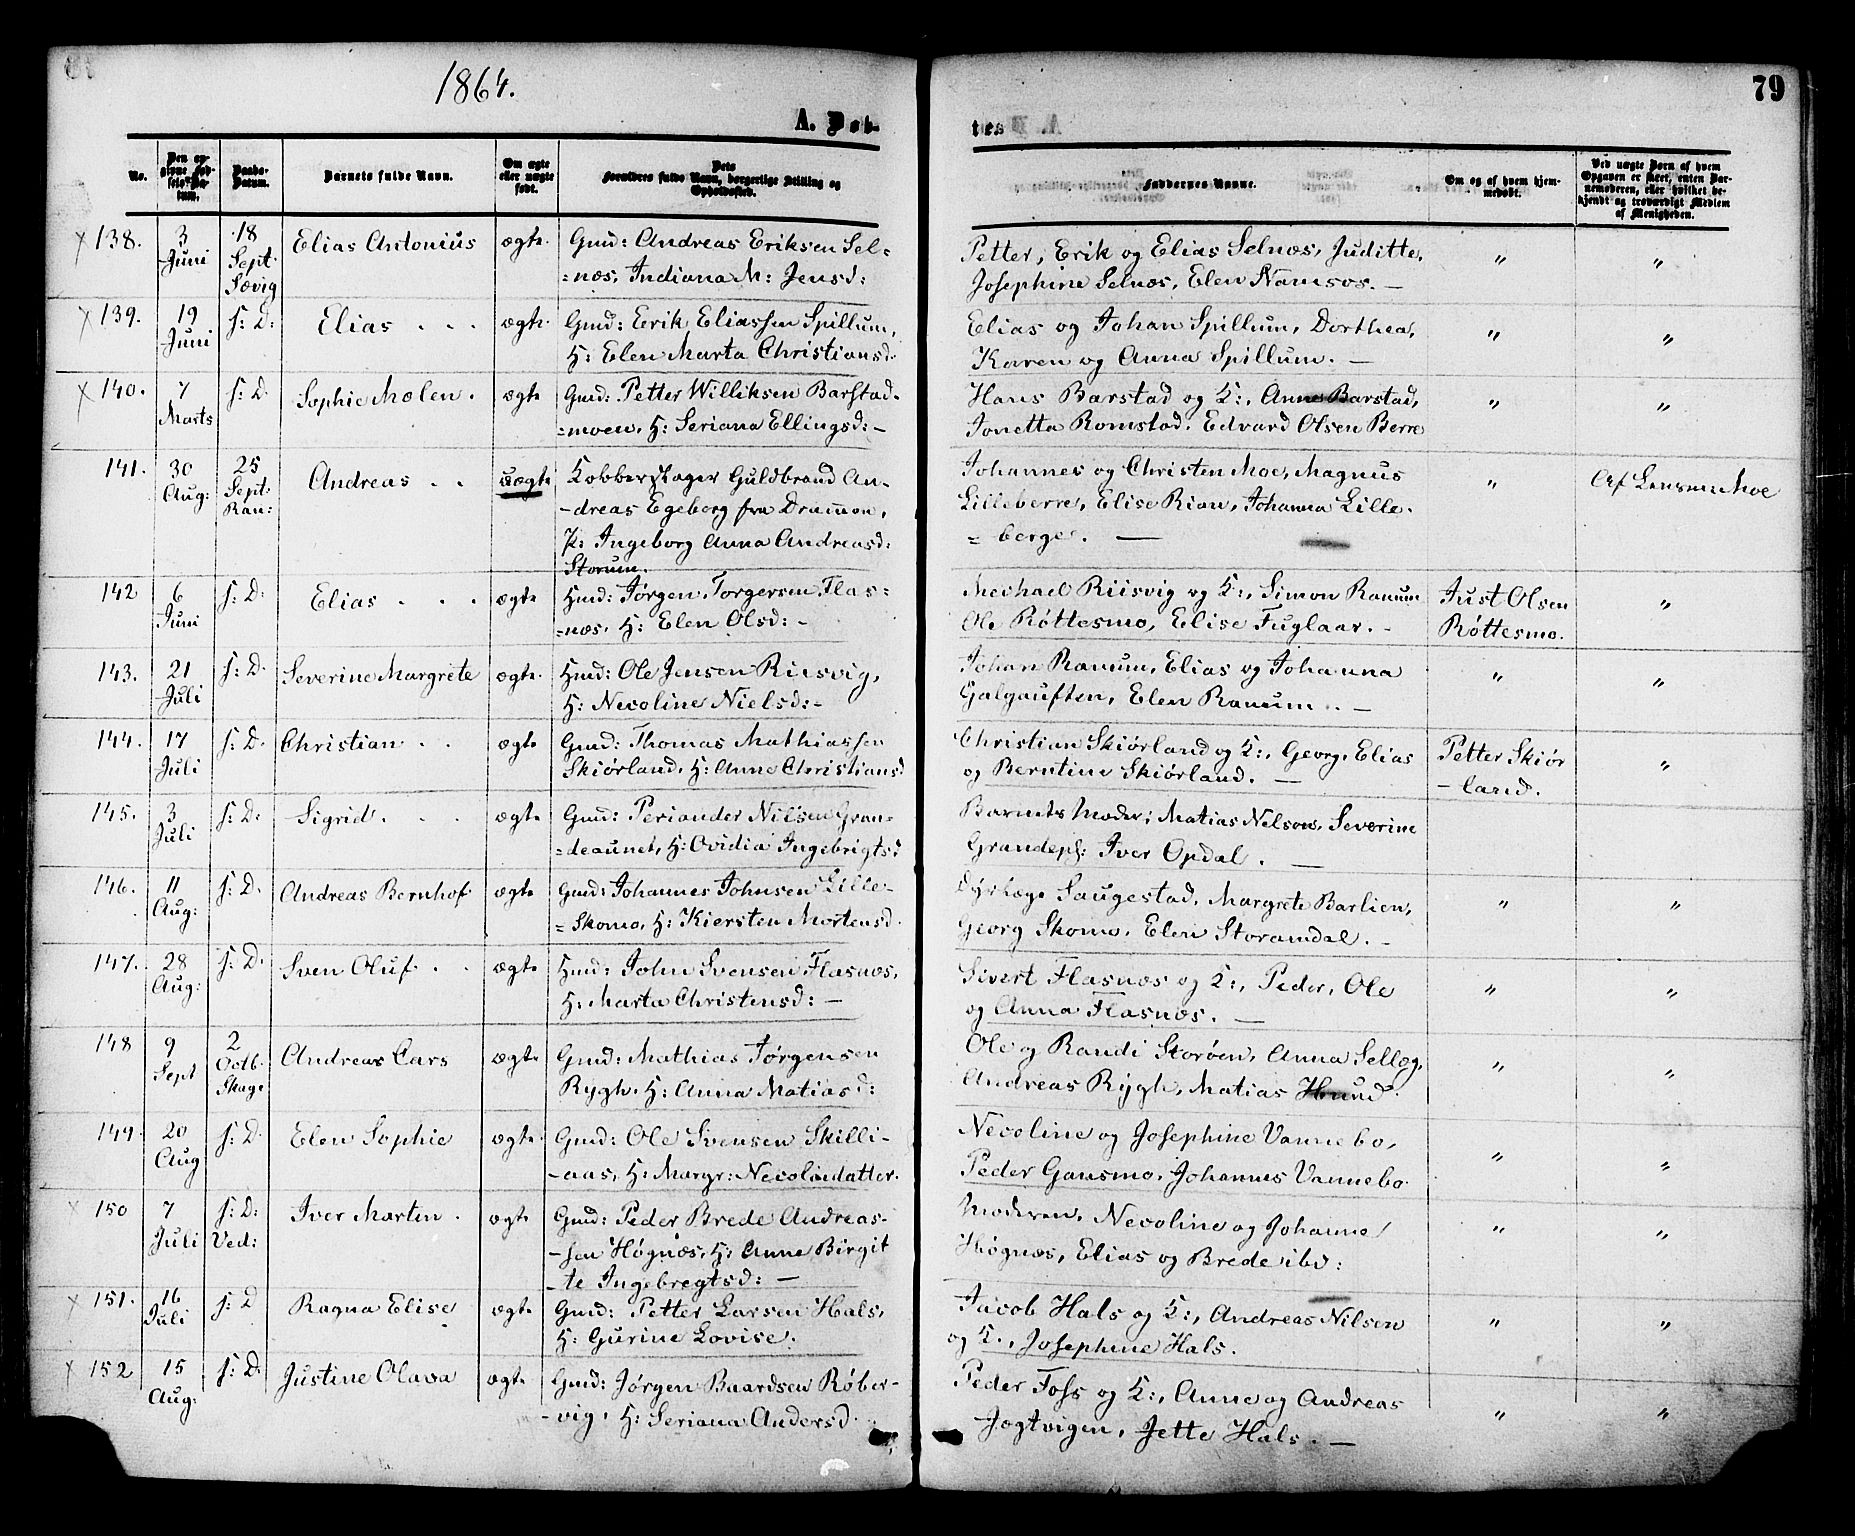 1864.
79
A. Døb-
tes
No.
Den op-
givne Fød-
sels-Da-
tum.
Daabs-
Datum.
Barnets fulde Navn.
Om ægte
eller uægte
født.
Dets
Forældres fulde Navn, borgerlige Stilling og
Opholdssted.
Faddernes Navne.
Om og af hvem hjem-
medøbt.
Ved uægte Børn af hvem
Opgaven er skeet, enten Bar-
nemoderen, eller hvilket be-
kjendt og troværdigt Medlem
af Menigheden.
× 138. 3 Juni 18 Sept. Sævig Elias Antonius ægte. Gmd: Andreas Eriksen Sel-
=næs, Indiana M: Jensd:
Petter, Erik og Elias Selnæs, Juditte,
Josephine Selnæs, Elen Namsos. — " "
× 139. 19 Juni s: D: Elias . . . ægte. Gmd: Eerik Eliassen Spillum,
H: Elen Marta Christiansd.
Elias og Johan Spillum, Dorthea,
Karen og Anna Spillum. — " "
× 140. 7 Marts s: D. Sophie Malen . ægte Gmd: Petter Williksen Barstad-
=moen, H: Seriana Ellingsd: -
Hans Barstad og K:, Anne Barstad,
Jonetta Romstad. Edvard Olsen Berre " "
141. 30 Aug: 25 Sept: Ran: Andreas . . uægte Kobberslager Guldbrand An-
-dreas Egeborg fra Drammen,
P: Ingeborg Anna Andreasd:
Storum.
Johannes og Christen Moe, Magnus
Lilleberre, Elise Rian, Johanna Lille-
= berge. — " Af Lensm. Moe
142 6 Juni s: D. Elias . . . ægte Hmd: Jørgen Torgersen Flas=
=næs, H: Elen Olsd: -
Mechael Riisvig og K:, Simon Ranum
Ole Røttesmo, Elise Fuglaar. - Just Olsen
Røttesmo. "
143. 21 Juli s: D. Severine Margrete ægte. Hmd: Ole Jensen Riisvig,
H: Necoline Nielsd: -
Johan Ranum, Elias og Johanna
Galgauften, Elen Ranum. - " "
144. 17 Juli s: D. Christian . . ægte Gmd: Thomas Mathiassen
Skiørland, H: Anne Christiansd
Christian Skiørland og K:, Georg, Elias
og Berntine Skiørland. — Petter Skiør
-land. "
145. 3 Juli s: D: Sigrid . . . ægte Gmd: Periander Nilsen Gran-
=deaunet, H: Ovidia Ingebrigtsd
Barnets Moder; Matias Nelson, Severine
Grandepl: Iver Opdal. —
146. 11 Aug: s: D. Andreas Bernhof ægte Gmd: Johannes Johnsen Lille-
=Skomo, H: Kiersten Mortensd.
Dyrlæge Saugestad, Margrete Barlien,
Georg Skomo, Elen Storamdal. - " "
147. 28 Aug: s: D. Sven Oluf . . ægte Hmd: John Svensen Flasnæs,
H: Marta Christensd: —
Sivert Flasnæs og K:, Peder, Ole
og Anna Flasnæs. — " "
148 9 Sept 2 Octb. Skage Andreas Lars ægte Gmd: Mathias Jørgensen
Rygh, H: Anna Matiasd:
Ole og Randi Storøen, Anna Sellæg,
Andreas Rygh, Matias Hund. " "
149. 20 Aug s: D. Elen Sophie ægte. Gmd: Ole Svensen Skilli-
-aas, H: Margr: Necolaidatter.
Necoline og Josephine Vannebo,
Peder Gansmo, Johannes Vannebo. " "
× 150 7 Juli s: D: Ved: Iver Martin . ægte Gmd: Peder Brede Andreas-
-sen Høgnæs, H: Anne Birgit
-te Ingebregtsd: —
Moderen, Necoline og Johanne
Høgnæs, Elias og Brede ibd: " "
× 151. 16 Juli s: D Ragna Elise ægte Gmd: Petter Larsen Hals,
H: Gurine Lovise.
Jacob Hals og K:, Andreas Nilsen
og K., Josephine Hals. " "
× 152 15 Aug: s: D. Justine Olava ægte Gmd: Jørgen Baardsen Røber-
-vig, H: Seriana Andersd.
Peder Foss og K:, Anne og Andreas
Jægtvigen, Jette Hals. — " "